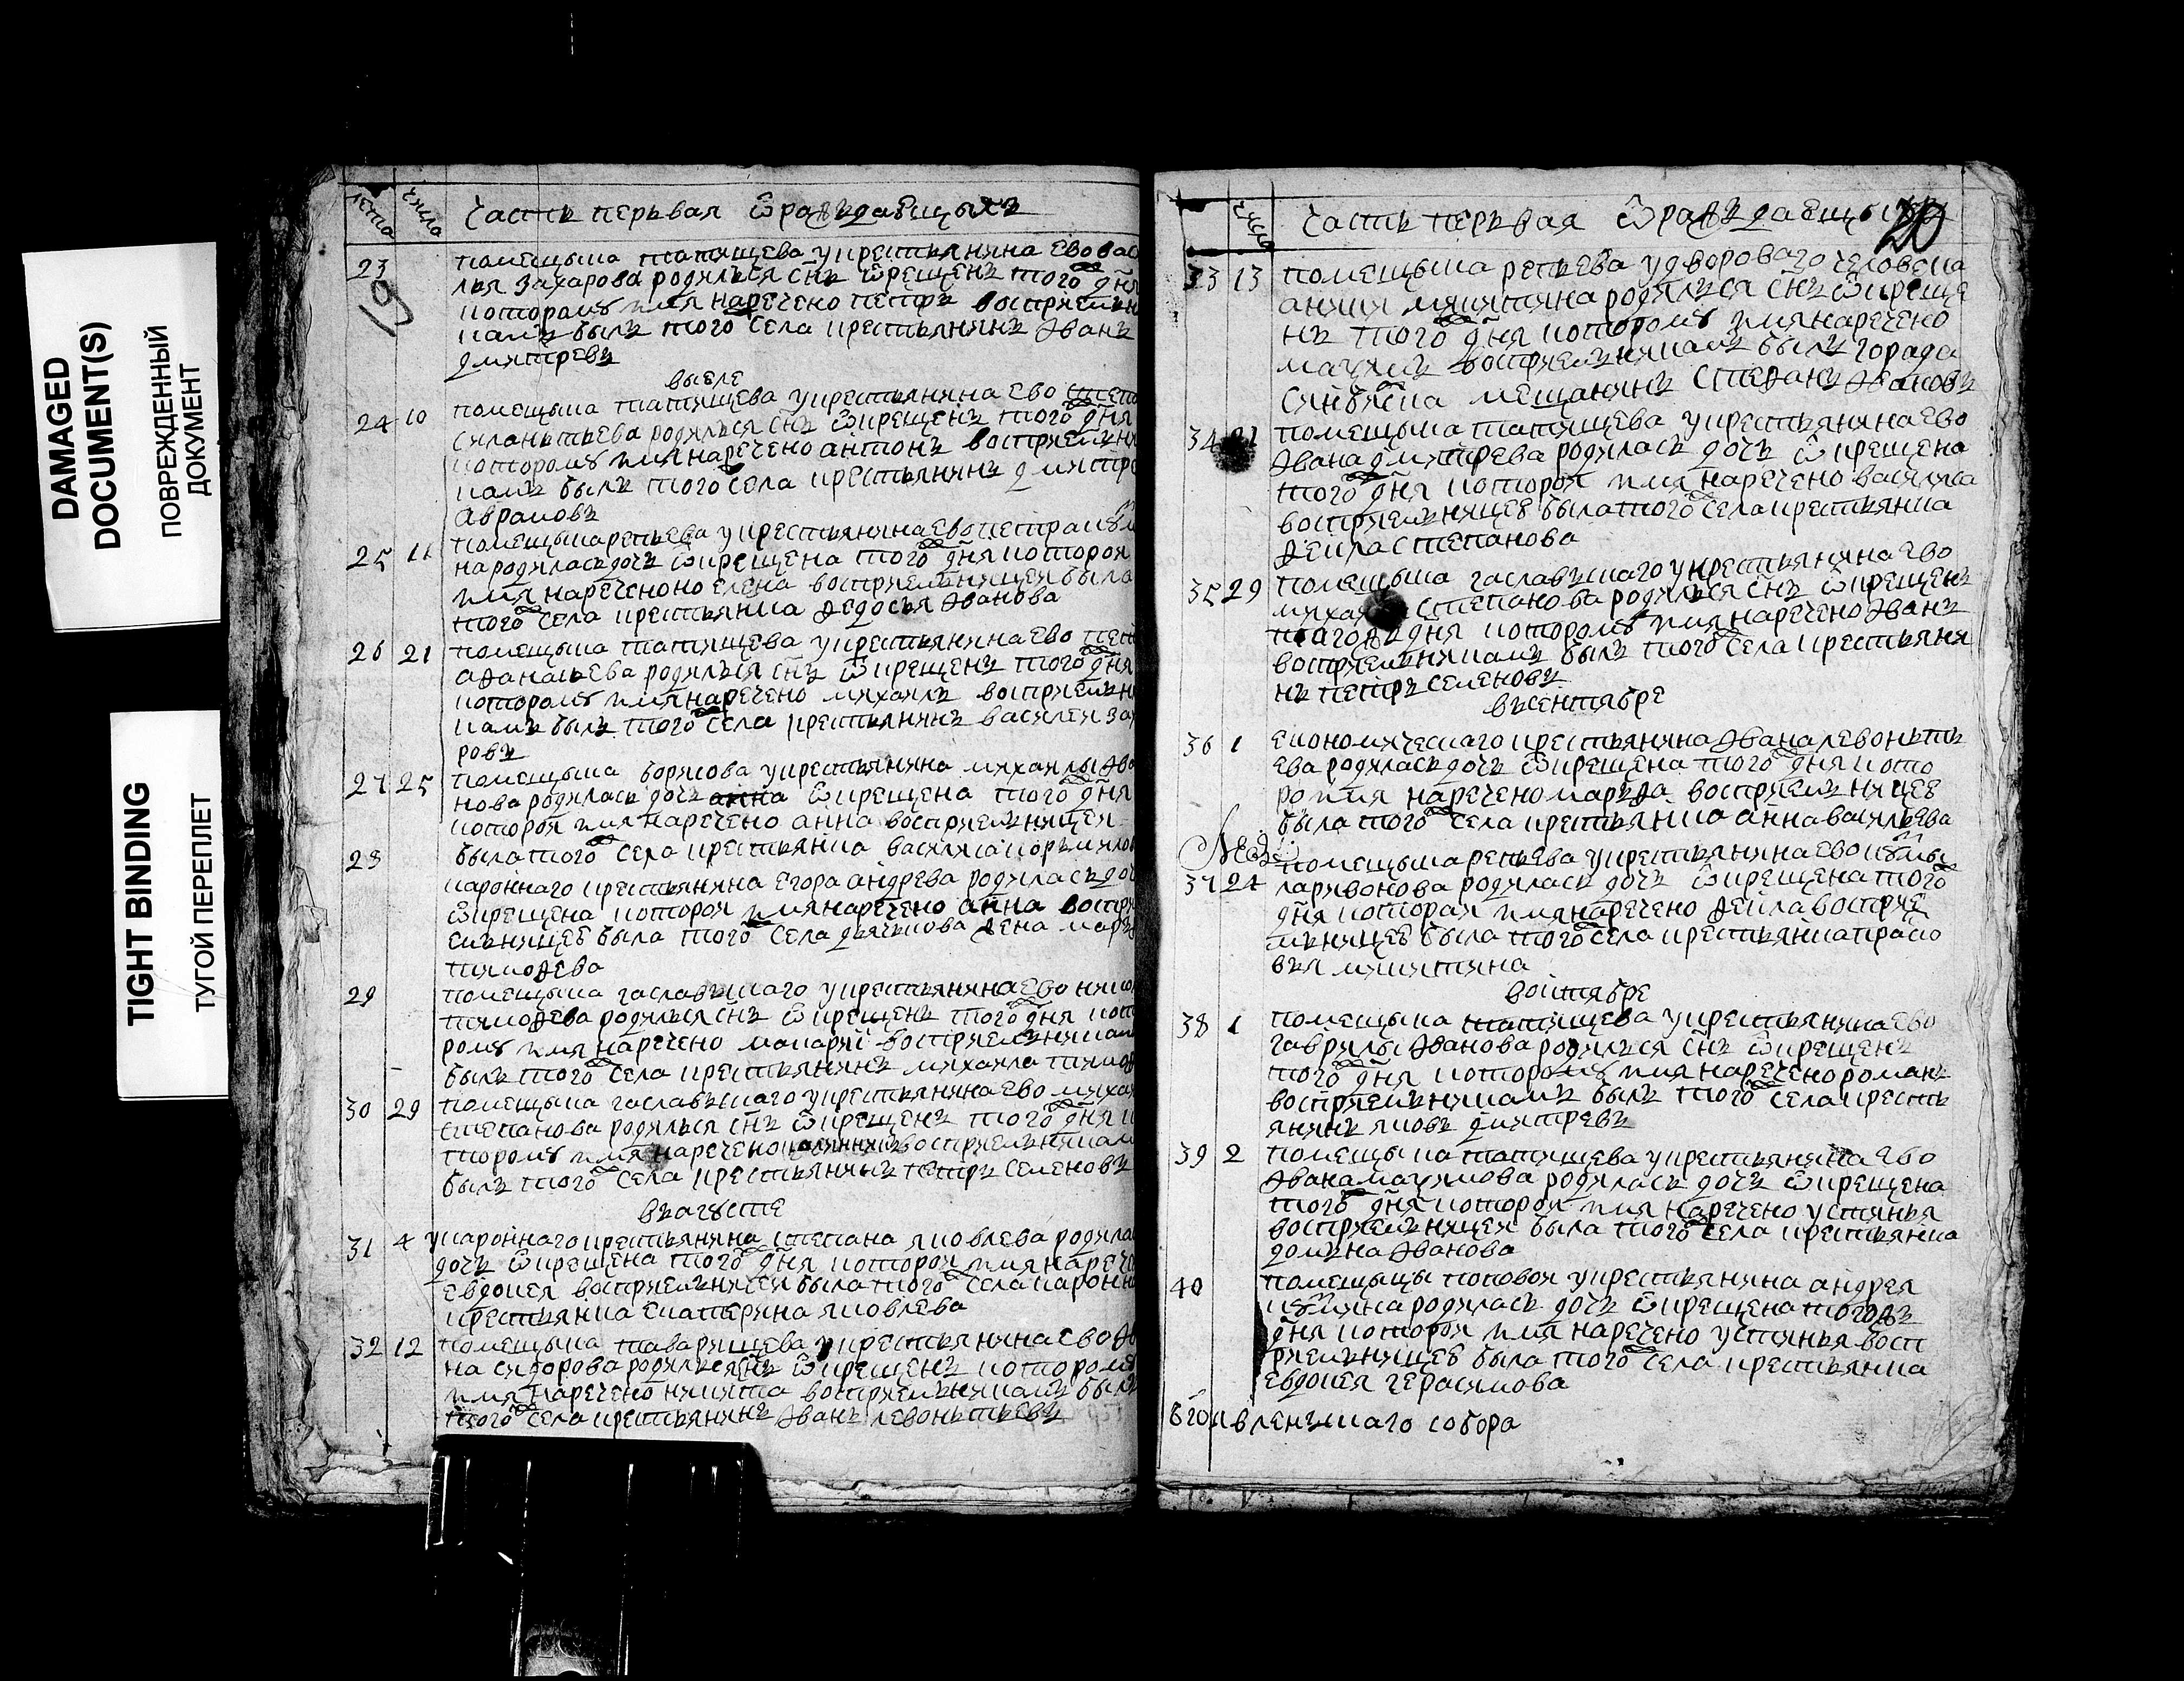 DAMAGED
DOCUMENT(S)
ПОВРЕЖДЕННЫЙ
ДОКУМЕНТ
TIGHT BINDING
ТУГОЙ ПЕРЕПЛЕТ
числа
часть первая ѡраждаещыхъ
23
помещыка татищева укрестьянина ево вас
лья захарова родился снъ ѡкрещенъ того дня
19
которому имя наречено петръ восприемни
камъ былъ того села крестьянинъ иванъ
дмитревъ
выеле
24 10 помещыка татищева укрестьянина ево
силантьева родился снъ ѡкрещенъ того дня
которому имя наречено антонъ восприемни
камъ былъ того села крестьянинъ дмитре
аврамовъ
25 11 помещыка репьева укрестьянина ево петра
на родилась дочь ѡкрещена того дня которой
имя наречено елена восприемницей была
того села крестьянка федосья иванова
26 21 помещыка татищева укрестьянина ево
афанасьева родился снъ ѡкрещенъ того дня
которому имя наречено михаилъ восприемни
камъ былъ того села крестьянинъ василей за
ровъ
27 25 помещыка борисова укрестьянина михаилы ива
нова родилась дочь анна ѡкрещена того дня
которой имя наречено анна восприемницей
была того села крестьянка василиса
28
кароннаго крестьянина егора андрева родилась доч
ѡкрещена которой имя наречено анна воспри
емницеѣ была того села дьячкова жена марѳ
тимофева
29
помещыка гаславскаго укрестьянина ево
тимофева родился снъ ѡкрещенъ того дня кот
рому имя наречено макарий восприемникам
былъ того села крестьянинъ михаила тимоф
30 29 помещыка гаславскаго укрестьянина ево миха
степанова родился снъ ѡкрещенъ того дня к
торому имя наречено восприемникам
былъ того села крестьянинъ петръ семеновъ
въ августе
31 4 укароннаго крестьянина степана яковлева родила
дочь ѡкрещена того дня которой имя нарече
евдокея восприемницей была того села каронна
крестьянка екатерина яковлева
32 12 помещыка таварищева укрестьянина ево ив
на сидорова родился снъ ѡкрещенъ которому
имя наречено никита восприемникамъ былъ
того села крестьянинъ иванъ левонтьевъ
20
числа
часть первая ѡраждаещы
33 13 помещыка репьева удвороваго человека
аники микитина родился снъ ѡкреще
нъ того дня которому имя наречено
восприемникамъ былъ города
синбиска мещанинъ степанъ ивановъ
34 21 помещыка татищева укрестьянина ево
ивана дмитрева родилась дочь ѡкрещена
того дня которой имя наречено василиса
восприемницеѣ была того села крестьянка
фекла степанова
35 29 помещыка гаславскаго укрестьянина ево
миха степанова родился снъ ѡкрещенъ
тагожъ дня которому имя наречено иванъ
восприемникамъ былъ того села крестьяни
нъ петръ семеновъ
въ сентябре
36 1 економическаго крестьянина ивана левонть
ева родилась дочь ѡкрещена того дня кото
ро имя наречено марѳа восприемницеѣ
была того села крестьянка анна васильева
помещыка репьева укрестьянина ево
37 24 ларивонова родилась дочь ѡкрещена того
дня которая имя наречено фекла восприе
мницеѣ была того села крестьянка праско
вья микитина
воктябре
38 1 помещыка татищева укрестьянина ево
гаврилы иванова родился снъ ѡкрещенъ
того дня которому имя наречено романъ
восприемникамъ былъ того села кресть
янинъ яковъ дмитревъ
39 2 помещыка татищева укрестьянина ево
ивана родилась дочь ѡкрещена
того дня которой имя наречено устинья
восприемницей была того села крестьянка
домъна иванова
40
помещыцы поповой укрестьянина андрея
родилась дочь ѡкрещена тогожъ
дня которой имя наречено устинья восп
риемницеѣ была того села крестьянка
евдокея герасимова
бгоявленъскаго собора